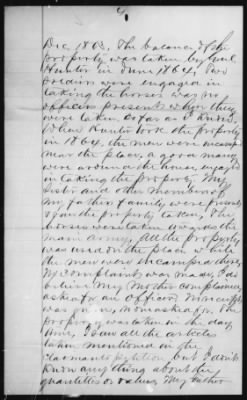 Dec 1863. The balance of the
property was taken by Genl
Hunter in June 1864, Two
soldiers were engaged in
taking the horses was no
officers present when they
were taken so far as I know.
When Hunter took the property
in 1864, the men were encamped
near the place, a good many
were around the house engaged
in taking the property. My
sister and other members of
my father's family were present
& saw the property taken, The
horses were taken towards the
main army, all the property
was used on the place while
the men were encamped there,
No complaint was made, I do
believe my Mother complained
asked for an officer. No receipt
was given, none asked for. The
property was taken in the day
time, I saw all the articles
taken mentioned in the
claimants petition, but I don't
know any thing about the
quantities or value, My father